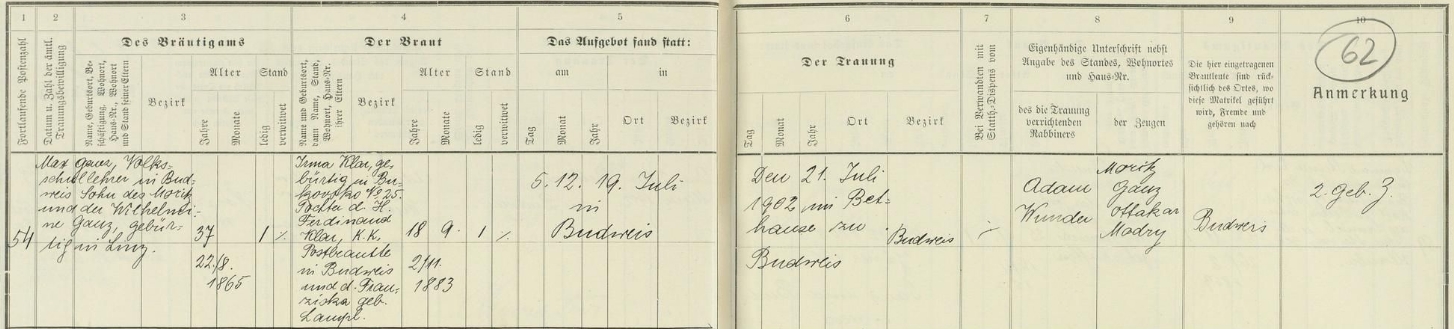 1
2
3
4
5
6
7
8
9
10
62
Fortlaufende Postenzahl
Datum u. Zahl der ämtl.
Trauungsbewilligung
Des Bräutigams
Name, Geburtsort, Be-
schäftigung, Wohnort,
Haus-Nr., Wohnort
und Stand seiner Eltern
Bezirk
Alter
Jahre
Monate
Stand
ledig
verwitwet
Der Braut
Name und Geburtsort,
dann Name, Stand,
Wohnort, Haus-Nr.
ihrer Eltern
Bezirk
Alter
Jahre
Monate
Stand
ledig
verwitwet
Das Aufgebot fand statt:
am
in
Tag
Monat
Jahr
Ort
Bezirk
Der Trauung
Tag
Monat
Jahr
Ort
Bezirk
Bei Verwandten mit
Statth.-Dispens vom
Eigenhändige Unterschrift nebst
Angabe des Standes, Wohnortes
und Haus-Nr.
des die Trauung
verrichtenden
Rabbiners
der Zeugen
Die hier eingetragenen
Brautleute sind rück-
sichtlich des Ortes, wo
diese Matrikel geführt
wird, Fremde und
gehören nach
Anmerkung
54
Max Ganz, Volks-
schullehrer in Bud-
weis Sohn des Moritz
und der Wilhelmi-
ne Ganz, gebür-
tig in Linz.
37
22/8.
1865
1
Irma Klar, ge-
bürtig in Bu-
kovsko № 25.
Tochter d. H.
Ferdinand
Klar, K.K.
Postbeamte
in Budweis
und d. Fran-
ziska geb.
Lampl.
18 9.
2/11.
1883
1
5. 12. 19. Juli
in
Budweis
Den 21. Juli
1902 im Bet-
hause zu
Budweis
Budweis
Adam
Wunder
Moritz
Ganz
Ottakar
Modry
Budweis
2. Geb. Z.